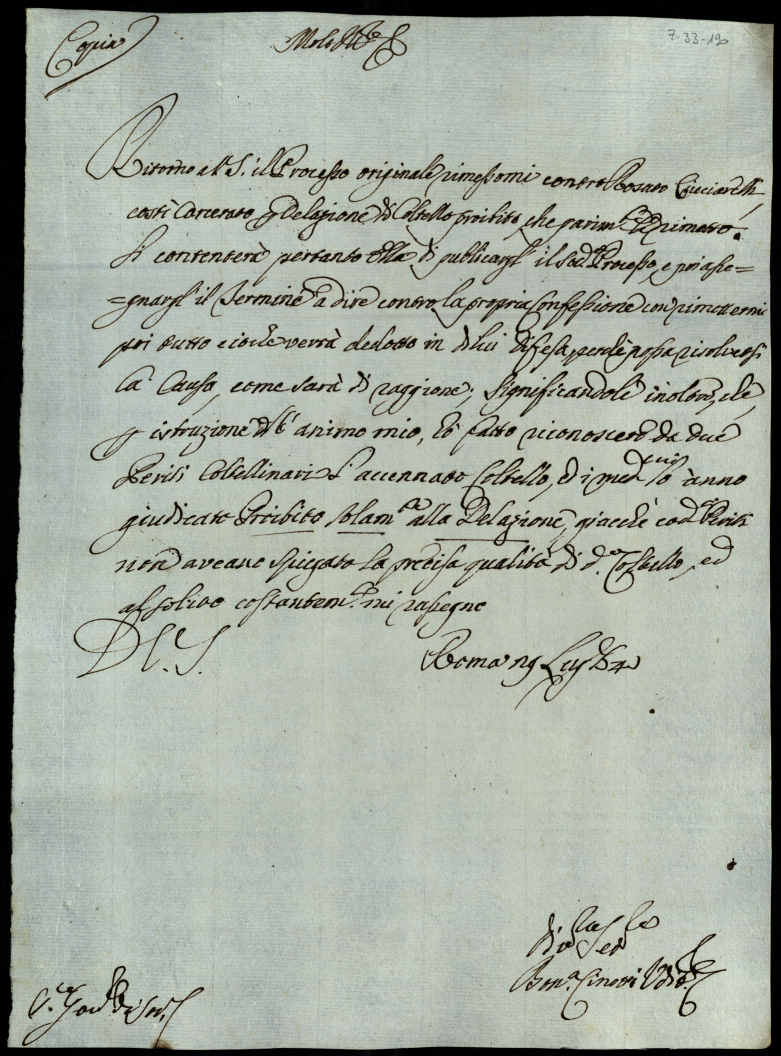 Copia
Molt Ill.re
7-33-190
Ritorno a V. S. il Processo originale rimessomi contro Rosato Cucciarelli
costì Carcerato p Delazione di Coltello proibito, che parim.te Le rimetto.
Si contenterà pertanto Ella di publicargl' il sud.o Processo, e poi asse=
=gnargl' il Termine a dire contro la propria Confessione con rimettermi
poi tutto ciò che verrà dedotto in di lui difesa, perche possa risolversi
la Causa, come sarà di raggione, significandole inoltre, che
p istruzione dell' animo mio, ho fatto riconoscere da due
Periti Coltellinari l' accennato Coltello, ed i med.mi lo ànno
giudicato Proibito solam.te alla Delazione, giacchè cod.i Periti
non aveano spiegato la precisa qualità di d.o Coltello, ed
al solito costantem.te mi rassegno
D V. S.
Roma 19 Lug